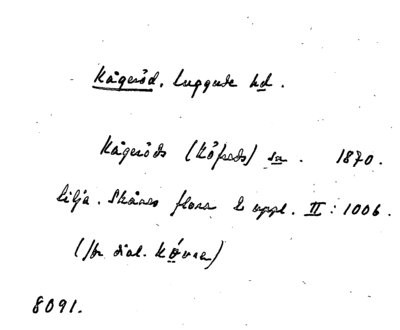 Kågeröd. Luggude hd.
Kågeröds (Köpeds) sn. 1870.
Lilja. Skånes flora 2 uppl. II: 1006.
(Jr dial. Kövra)
8091.